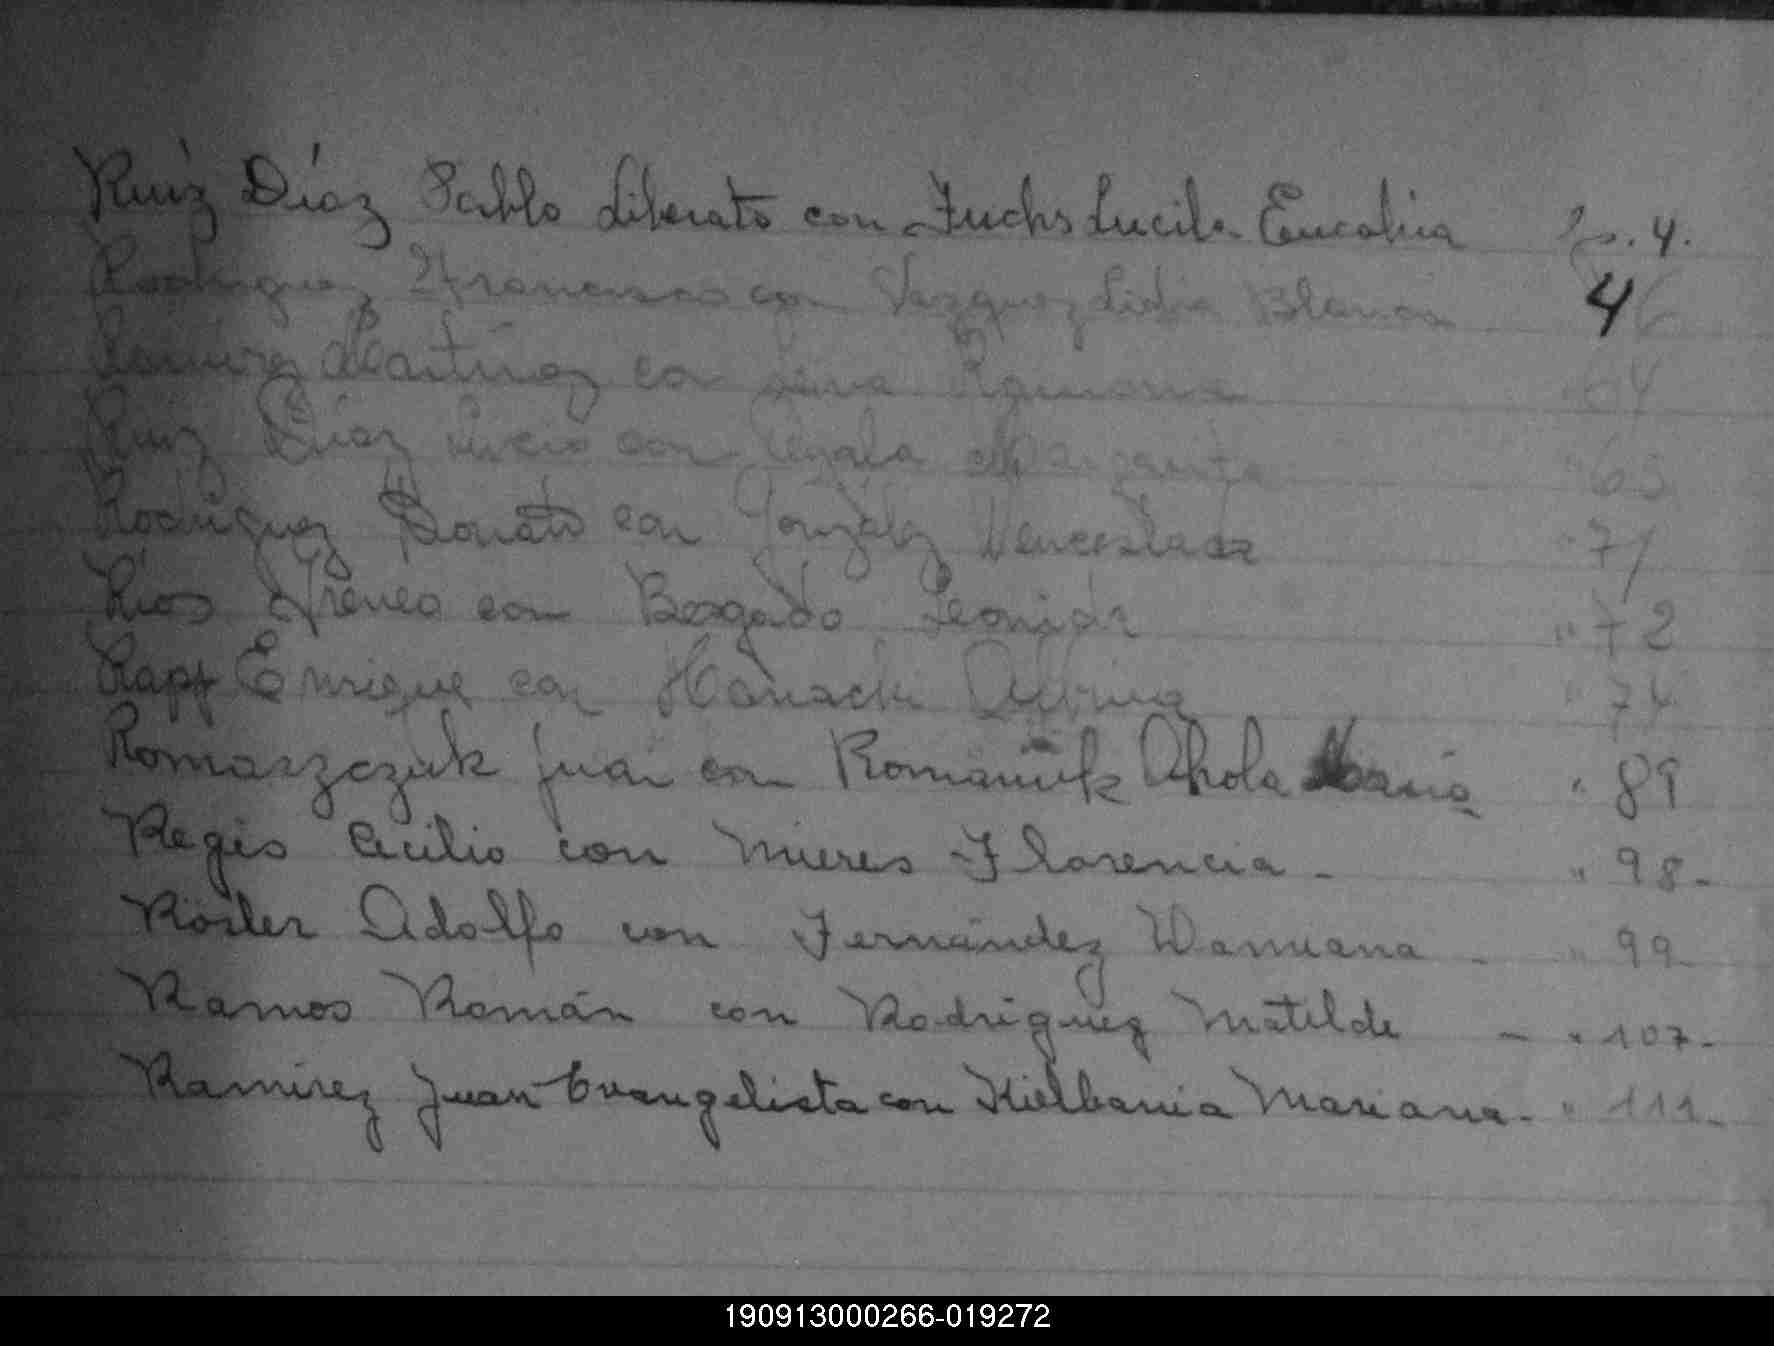 Ruíz Díaz Pablo Liberato con Fuchs Lucila Eucalina 4.
Rodriguez Francisco con Vazquez Lidia Blanca 46
Ramírez Martínez con Ramona 64
Ruiz Díaz Lucio con Ayala Margarita " 65
Rodríguez Donato con González Venceslada " 71
Ríos Ireneo con Bogado Leonida " 72
Rapp Enrique con Albina " 74
Romaszczuk Juan con Romaniuk Ahola María " 89
Regis Cecilio con Mieres Florencia - " 98-
Rosler Adolfo con Fernández Damiana - " 99
Ramos Román con Rodríguez Matilde - " 107-
Ramírez Juan Evangelista con Kielbania Mariana - " 111-
190913000266-019272